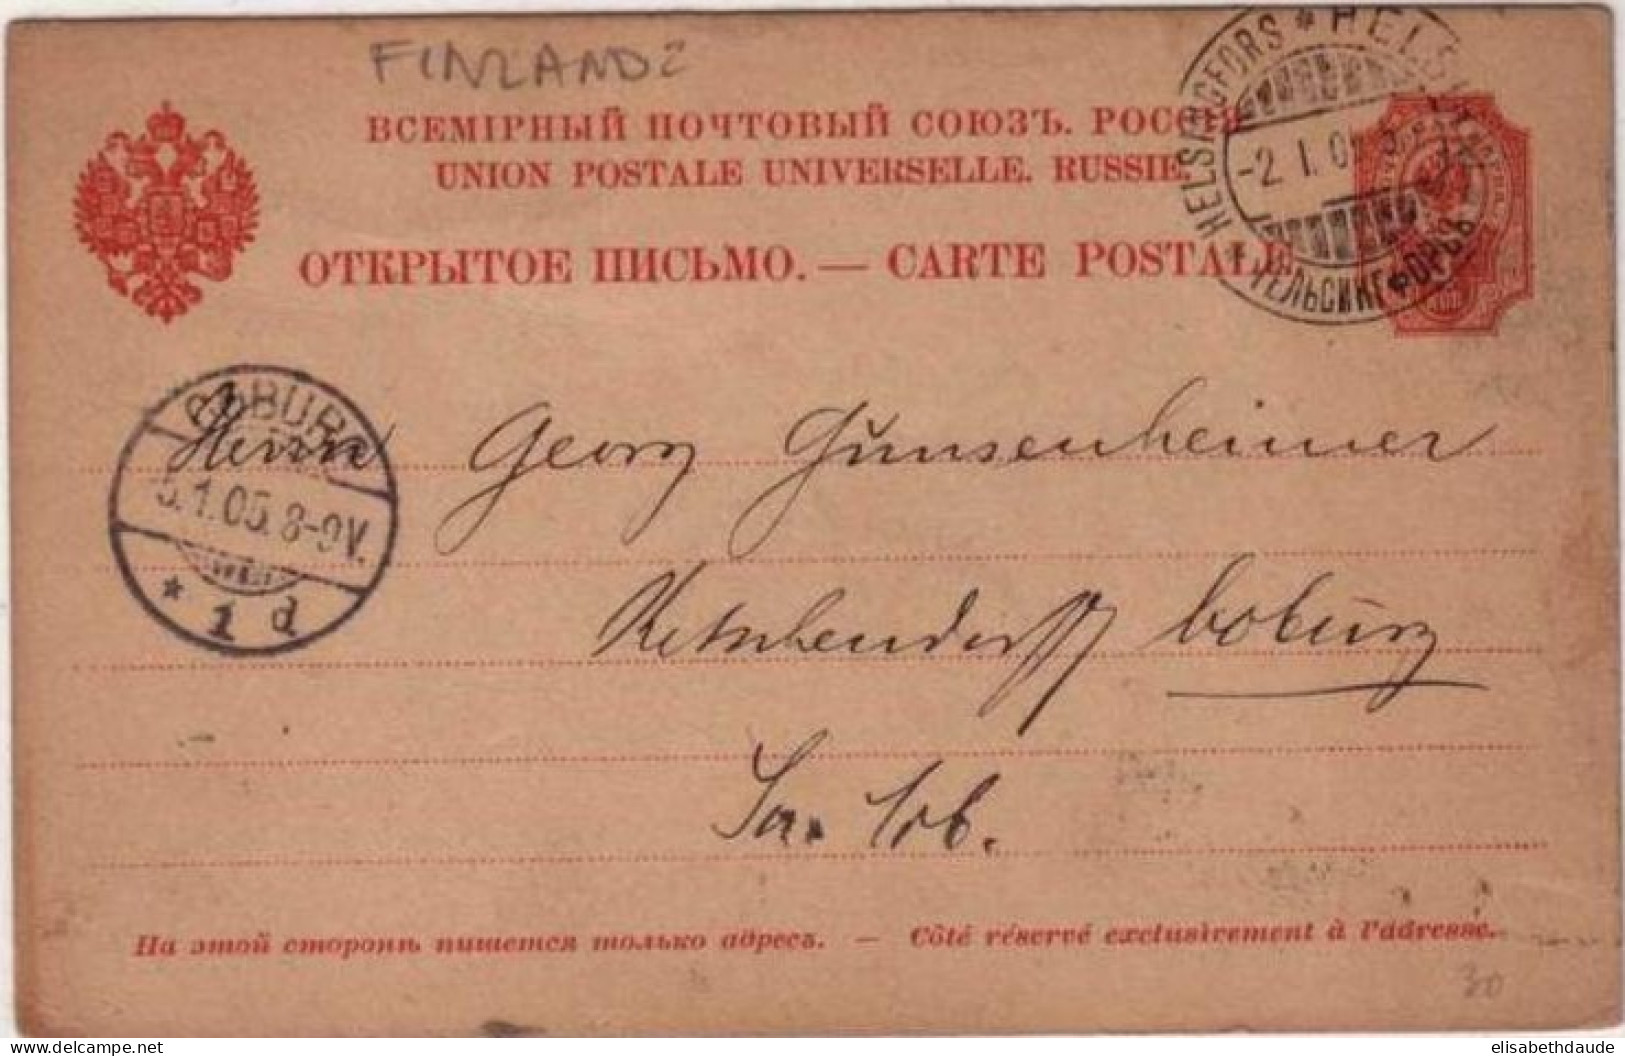 FINLANDE
ВСЕМІРНЫЙ ПОЧТОВЫЙ СОЮЗЪ. РОССІЯ
UNION POSTALE UNIVERSELLE. RUSSIE.
ОТКРЫТОЕ ПИСЬМО. — CARTE POSTALE.
HELSINGFORS * HELSINKI
-2.I.05
ГЕЛЬСИНГФОРСЪ
COBURG
5.1.05.8-9V.
* 1 d
Herrn Georg Gunsenheimer
Ketschendorff Coburg
Sa.
На этой сторонѣ пишется только адресъ. — Côté réservé exclusivement à l'adresse.
30
www.delcampe.net
elisabethdaude